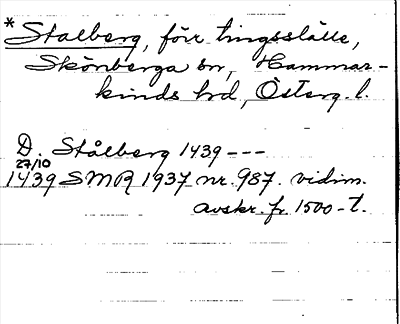 *Stalberg, förr tingsställe,
Skönberga sn, Hammar-
kinds hd, Österg. l.
D. Stålberg 1439 ---
27/10
1439 SMR 1937 nr. 987. vidim.
avskr. fr. 1500-t.